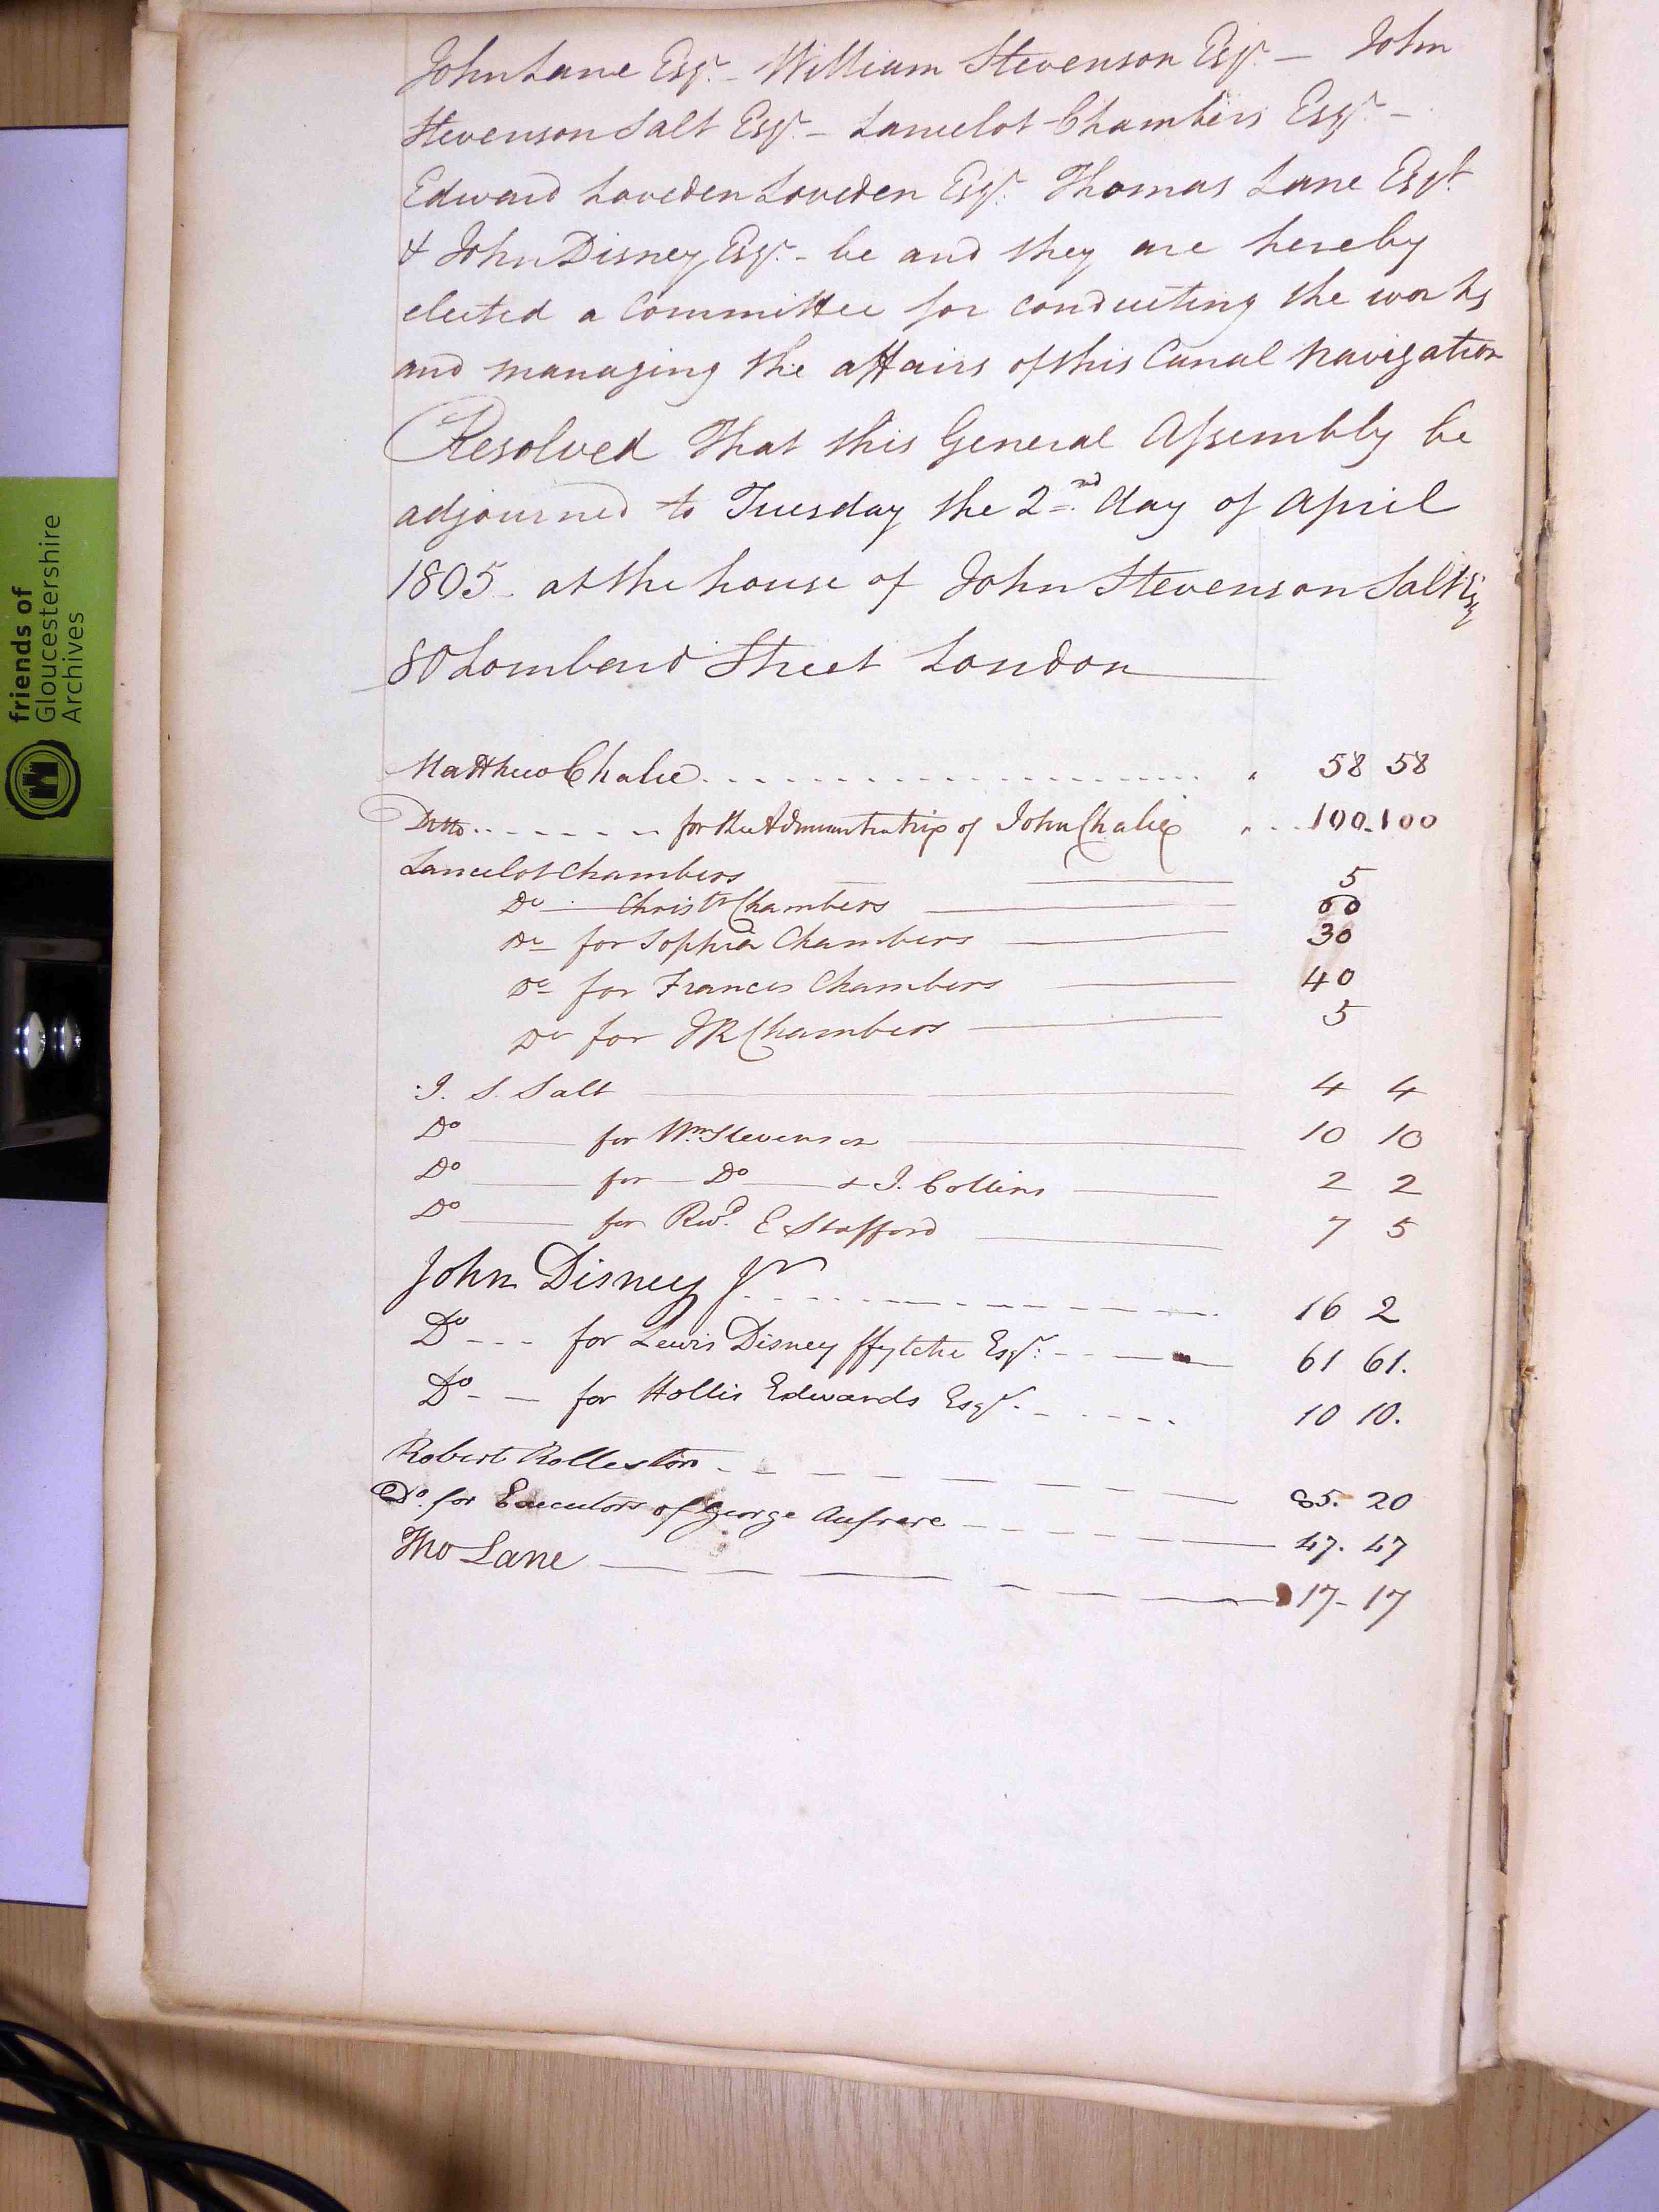 John Lane Esqr. - William Stevenson Esqr. - John
Stevenson Salt Esqr. - Lancelot Chambers Esqr. -
Edward Loveden Loveden Esqr. Thomas Lane Esqr.
& John Disney Esqr. - be and they are hereby
elected a Committee for conducting the works
and managing the affairs of this Canal Navigation
Resolved That this General Assembly be
adjourned to Tuesday the 2nd. day of April
1805 - at the house of John Stevenson Salt Esq
80 Lombard Street London
Matthew Chalie 58 58
Ditto for the Administratrix of John Chalie 100 100
Lancelot Chambers 5
Do Christr Chambers 60
Do for Sophia Chambers 30
Do for Frances Chambers 40
Do for JR Chambers 5
J. S. Salt 4 4
Do for Wm Stevenson 10 10
Do for Do & J. Collins 2 2
Do for Revd. E Stafford 7 5
John Disney Jr 16 2
Do for Lewis Disney ffytche Esqr. 61 61.
Do for Hollis Edwards Esqr. 10 10.
Robert Rolleston 85. 20
Do. for Executors of George Aufrere 47. 47
Tho Lane 17 - 17
friends of
Gloucestershire
Archives